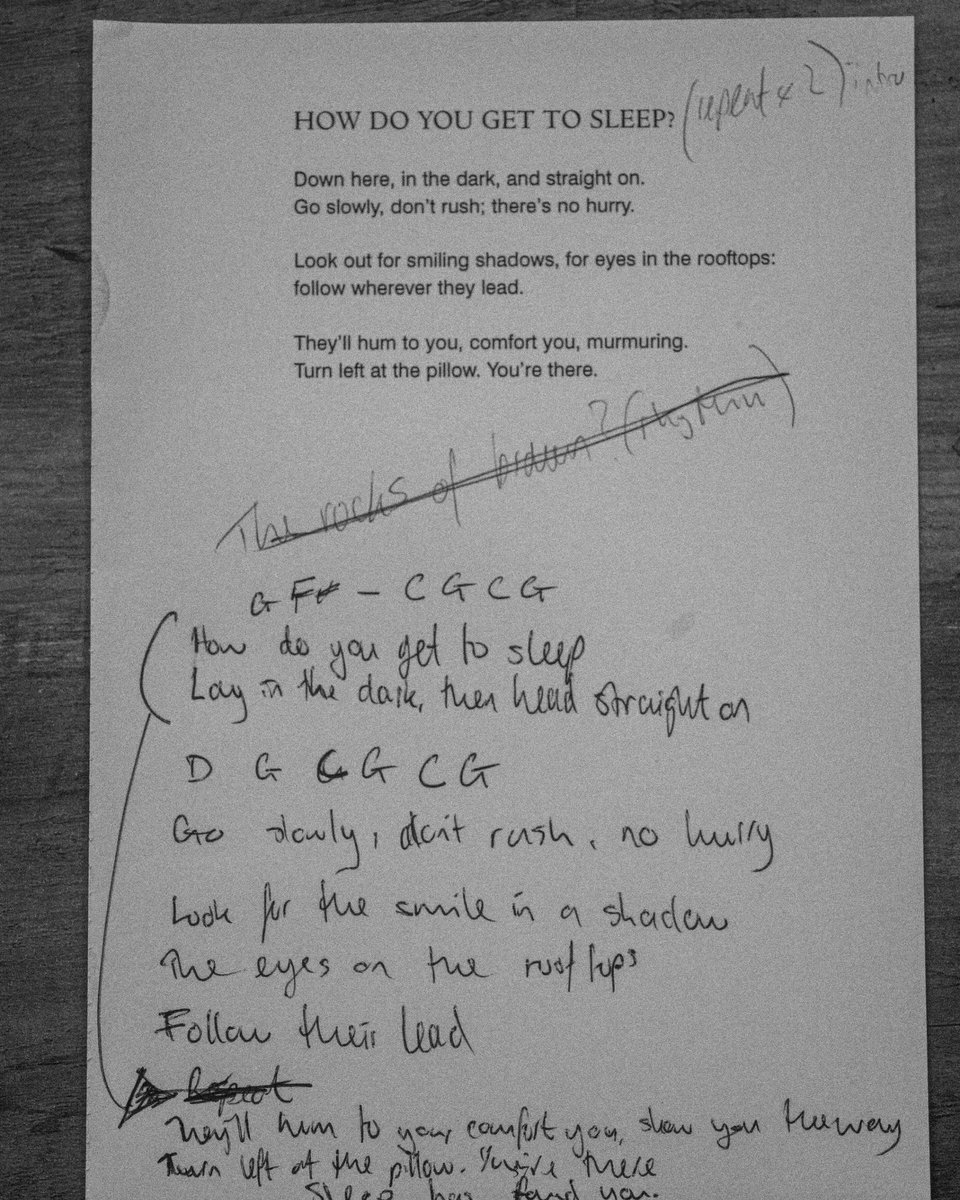 HOW DO YOU GET TO SLEEP? (repeat x 2) intro
Down here, in the dark, and straight on.
Go slowly, don't rush; there's no hurry.
Look out for smiling shadows, for eyes in the rooftops:
follow wherever they lead.
They'll hum to you, comfort you, murmuring.
Turn left at the pillow. You're there.
The rocks of ? (rhythm)
G F - C G C G
How do you get to sleep
Lay in the dark, then head straight on
D G C G C G
Go slowly, don't rush, no hurry
Look for the smile in a shadow
The eyes on the rooftops
Follow their lead
Repeat
They'll hum to you comfort you, show you the way
Turn left at the pillow. You're there
Sleep has found you.